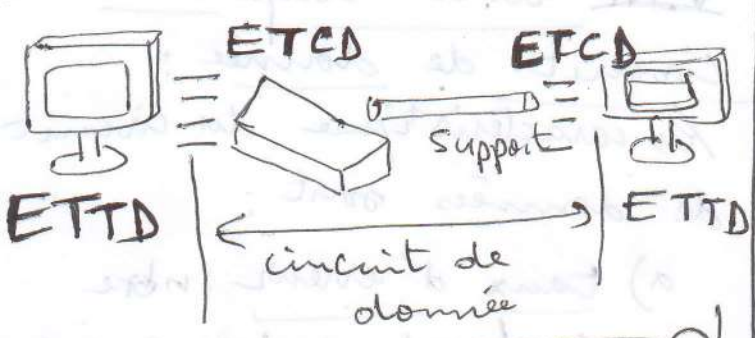 ETCD ETCD
support
ETTD ETTD
circuit de
donnée